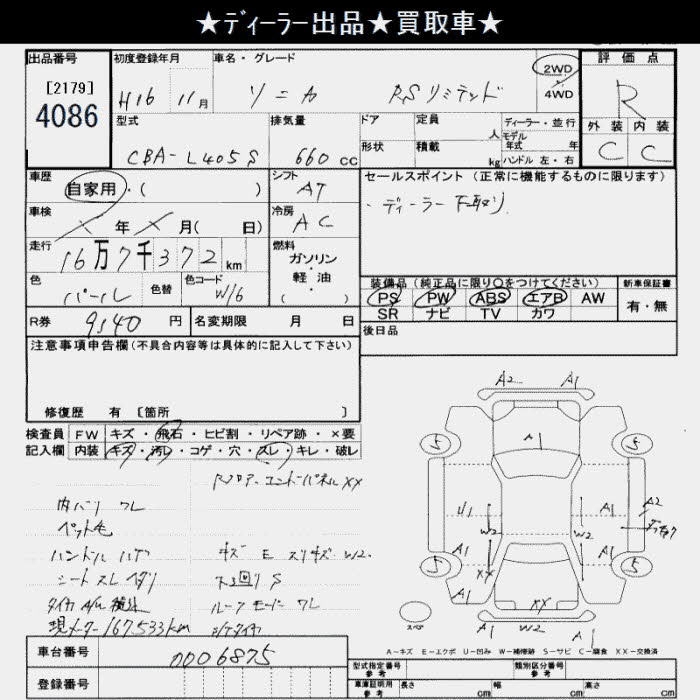 ★ディーラー出品★買取車★
出品番号
[2179]
4086
初度登録年月
H16 11月
車名・グレード
ソニカ RSリミテッド
2WD
4WD
評価点
R
外装 内装
C C
型式
CBA-L405S
排気量
660 cc
ドア
形状
定員
人
積載
kg
ディーラー・並行
モデル
年式 年
ハンドル 左・右
車歴
自家用・( )
シフト
AT
セールスポイント (正常に機能するものに限ります)
・ディーラー下取り
車検
X 年 X 月( 日)
冷房
AC
走行
16万7千372 km
燃料
ガソリン
・
軽油
( )
色
パール
色替
色コード
W16
装備品 (純正品に限り○をつけてください)
PS PW ABS エアB AW
SR ナビ TV カワ
新車保証書
有・無
R券 9140 円
名変期限 月 日
後日品
注意事項申告欄(不具合内容等は具体的に記入して下さい)
修復歴 有 〔箇所 〕
検査員 FW キズ・飛石・ヒビ割・リペア跡・×要
記入欄 内装 キズ・汚レ・コゲ・穴・スレ・キレ・破レ
Rフロアー エンドパネルXX
内バリ ワレ
ペット毛
ハンドル ハゲ
キズ E スリキズ W2.
シート スレ ヘタリ
下回り S
ルーフ モール ワレ
現メーター 167,533km
A2 A1
A1
5 5
U1 W2 W2 A1 A2
A1 XX A1 5 5
A1 XX
スペア
A1 W2 A1
A-キズ E-エクボ U-凹み W-補修跡 S-サビ C-腐食 XX-交換済
車台番号
0006875
登録番号
型式指定番号
参考
類別区分番号
参考
車庫証明用
参考
長さ cm
幅 cm
高さ cm